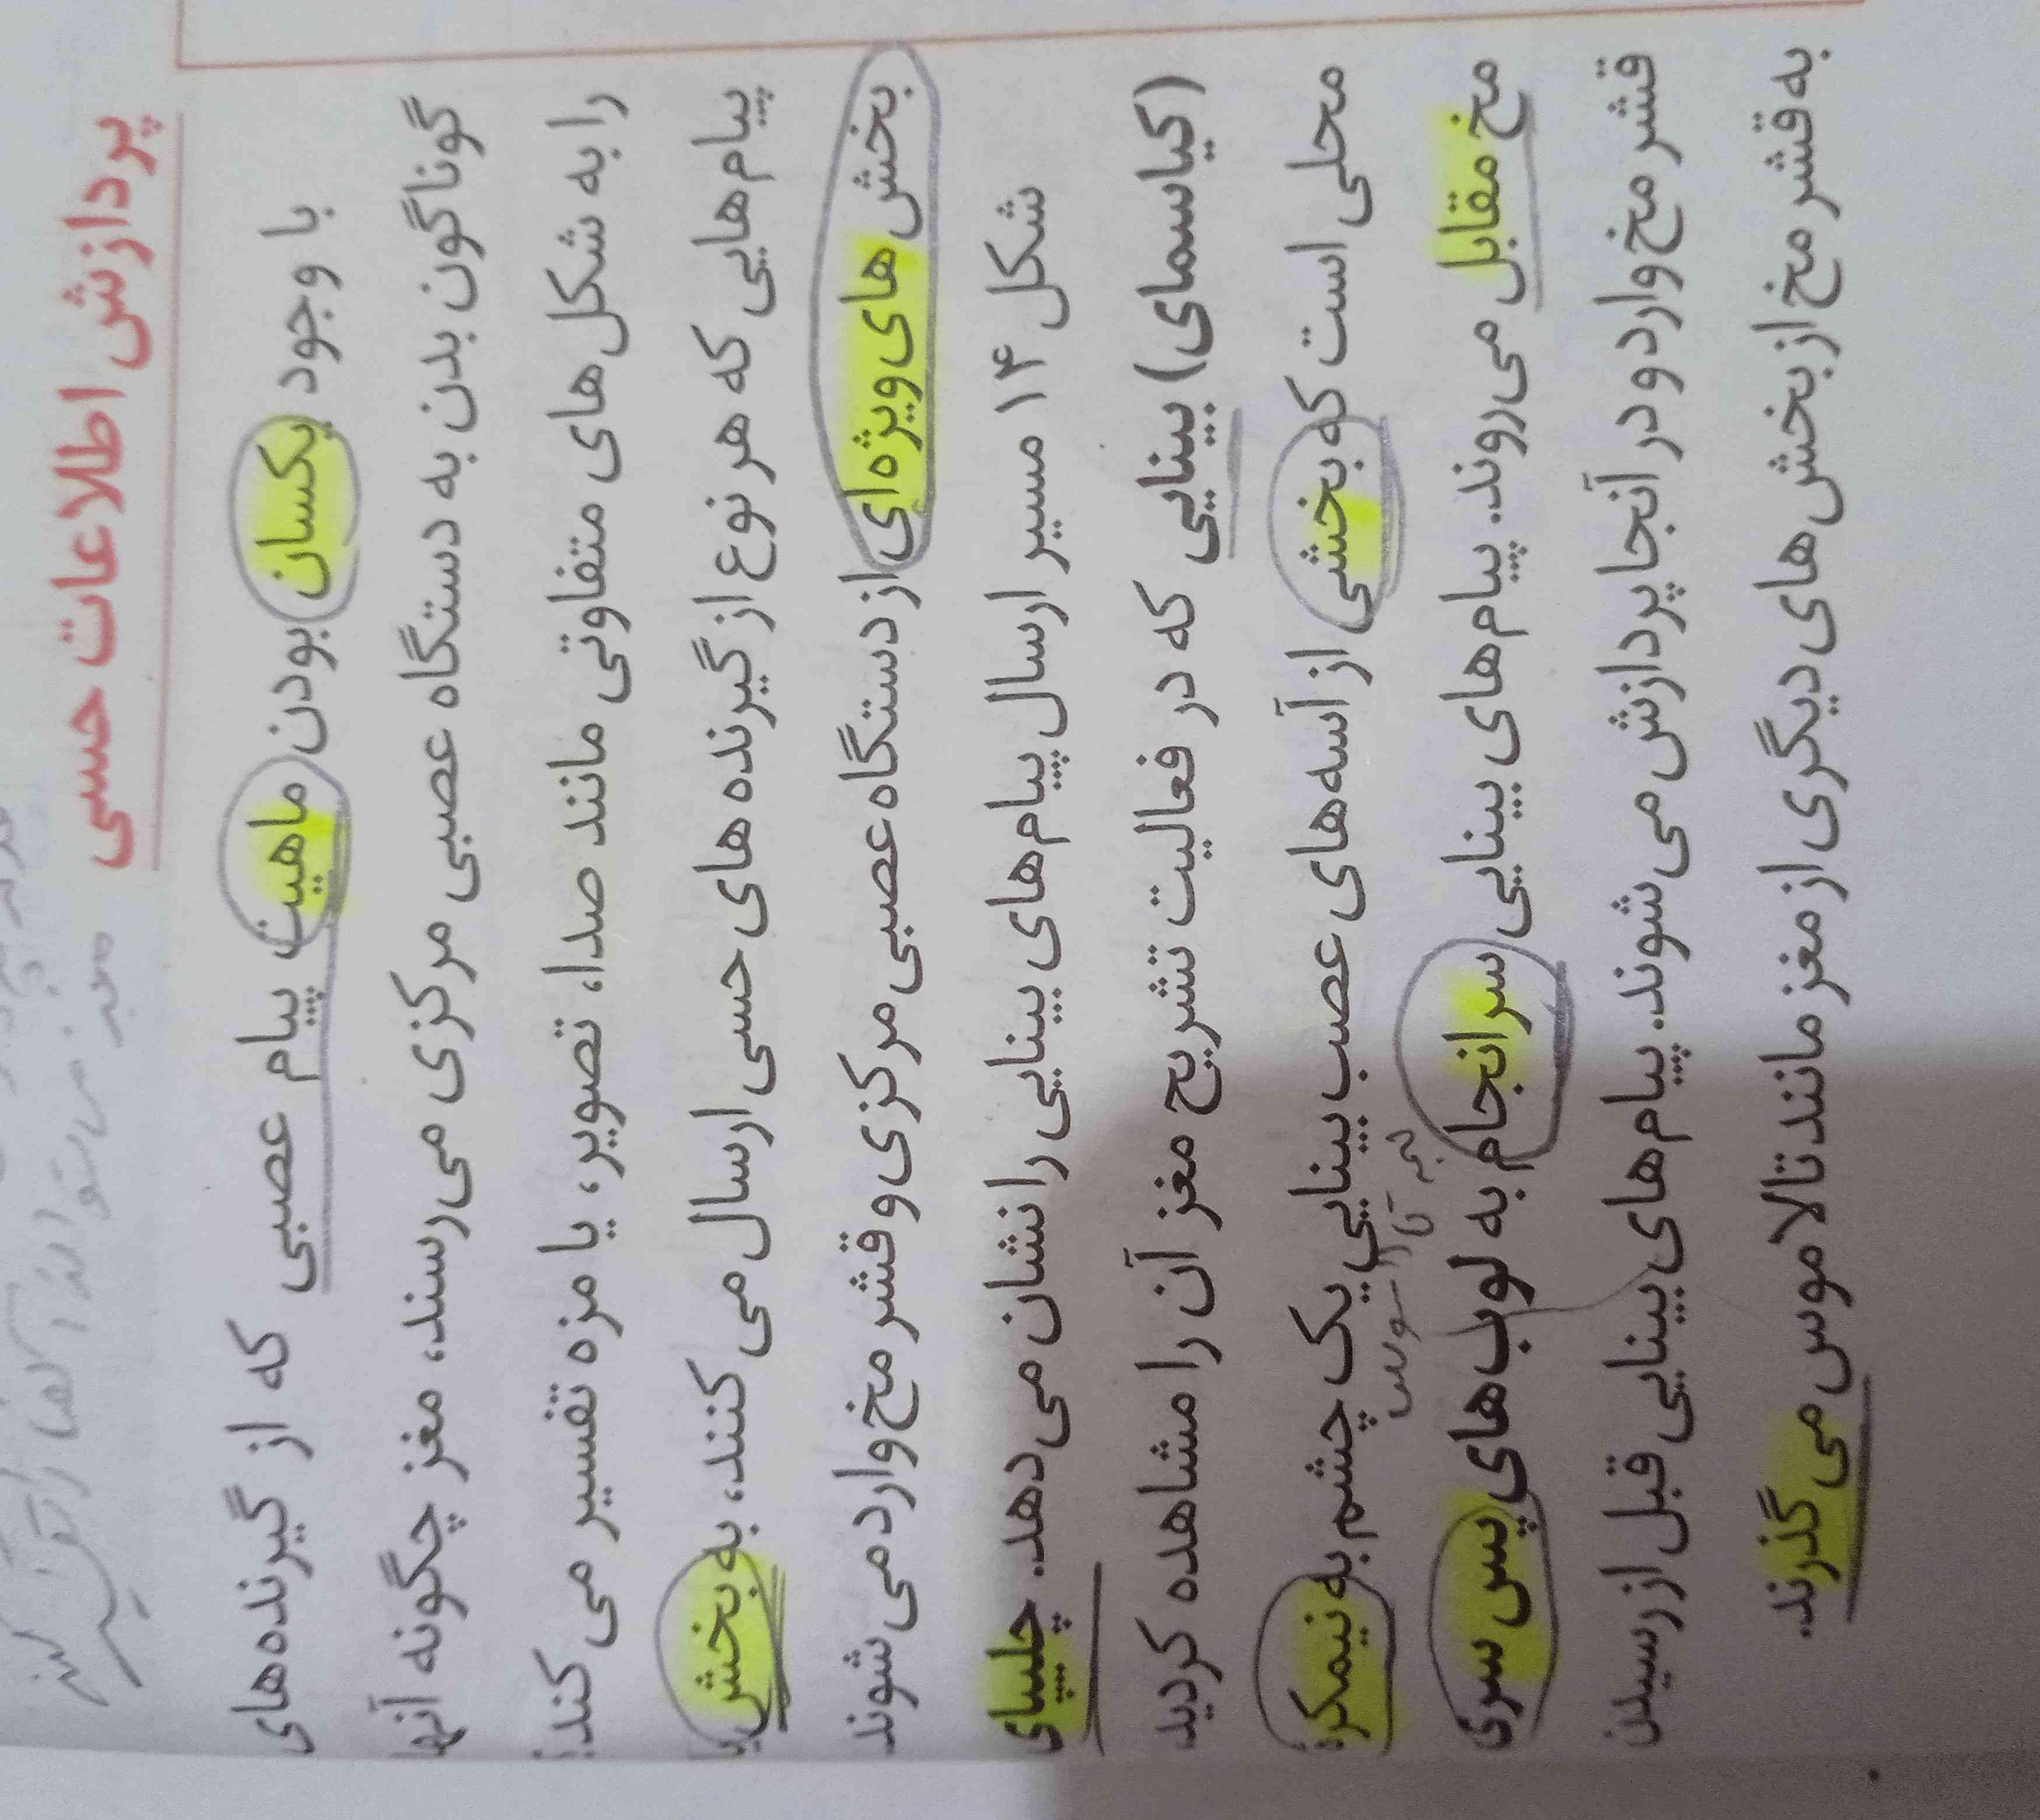 پردازش اطلاعات حسی
با وجود یکسان بودن ماهیت پیام عصبی که از گیرنده‌های
گوناگون بدن به دستگاه عصبی مرکزی می‌رسند، مغز چگونه آنها
را به شکل‌های متفاوتی مانند صدا، تصویر، یا مزه تفسیر می‌کند؟
پیام‌هایی که هر نوع از گیرنده‌های حسی ارسال می‌کنند، به بخش یا
بخش‌های ویژه‌ای از دستگاه عصبی مرکزی و قشر مخ وارد می‌شوند
شکل ۱۴ مسیر ارسال پیام‌های بینایی را نشان می‌دهد. چلیپای
(کیاسمای) بینایی که در فعالیت تشریح مغز آن را مشاهده کردید
محلی است که بخشی از آسه‌های عصب بینایی یک چشم به نیمکرهٔ
مخ مقابل می‌روند. پیام‌های بینایی سرانجام به لوب‌های پس سری
قشر مخ وارد و در آنجا پردازش می‌شوند. پیام‌های بینایی قبل از رسیدن
به قشر مخ از بخش‌های دیگری از مغز مانند تالاموس می‌گذرند.